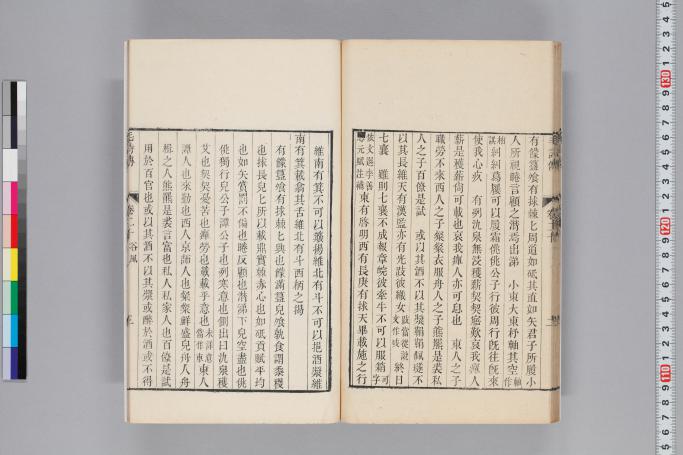 有饛簋飧有捄棘匕周道如砥其直如矢君子所履小
人所視睠言顧之潸焉出涕　小東大東杼軸其空
糾糾葛屨可以履霜佻佻公子行彼周行旣往旣來
使我心疚　有冽氿泉無浸穫薪契契寤歎哀我憚人
薪是穫薪尙可載也哀我憚人亦可息也　東人之子
職勞不來西人之子粲粲衣服舟人之子熊羆是裘私
人之子百僚是試　或以其酒不以其漿鞙鞙佩璲不
以其長維天有漢監亦有光跂彼織女終日
七襄　雖則七襄不成報章睆彼牽牛不可以服箱
東有啓明西有長庚有捄天畢載施之行
維南有箕不可以簸揚維北有斗不可以挹酒漿維
南有箕載翕其舌維北有斗西柄之揭
有饛簋飧有捄棘匕興也饛滿簋兒飧熟食謂黍稷
也捄長兒匕所以載鼎實棘赤心也如砥貢賦平均
也如矢賞罰不偏也睠反顧也潸涕下兒空盡也佻
佻獨行兒公子譚公子也冽寒意也側出曰氿泉穫
艾也契契憂苦也憚勞也載載乎意也東人
譚人也來勤也西人京師人也粲粲鮮盛兒舟人舟
楫之人熊羆是裘言富也私人私家人也百僚是試
用於百官也或以其酒不以其漿或醉於酒或不得